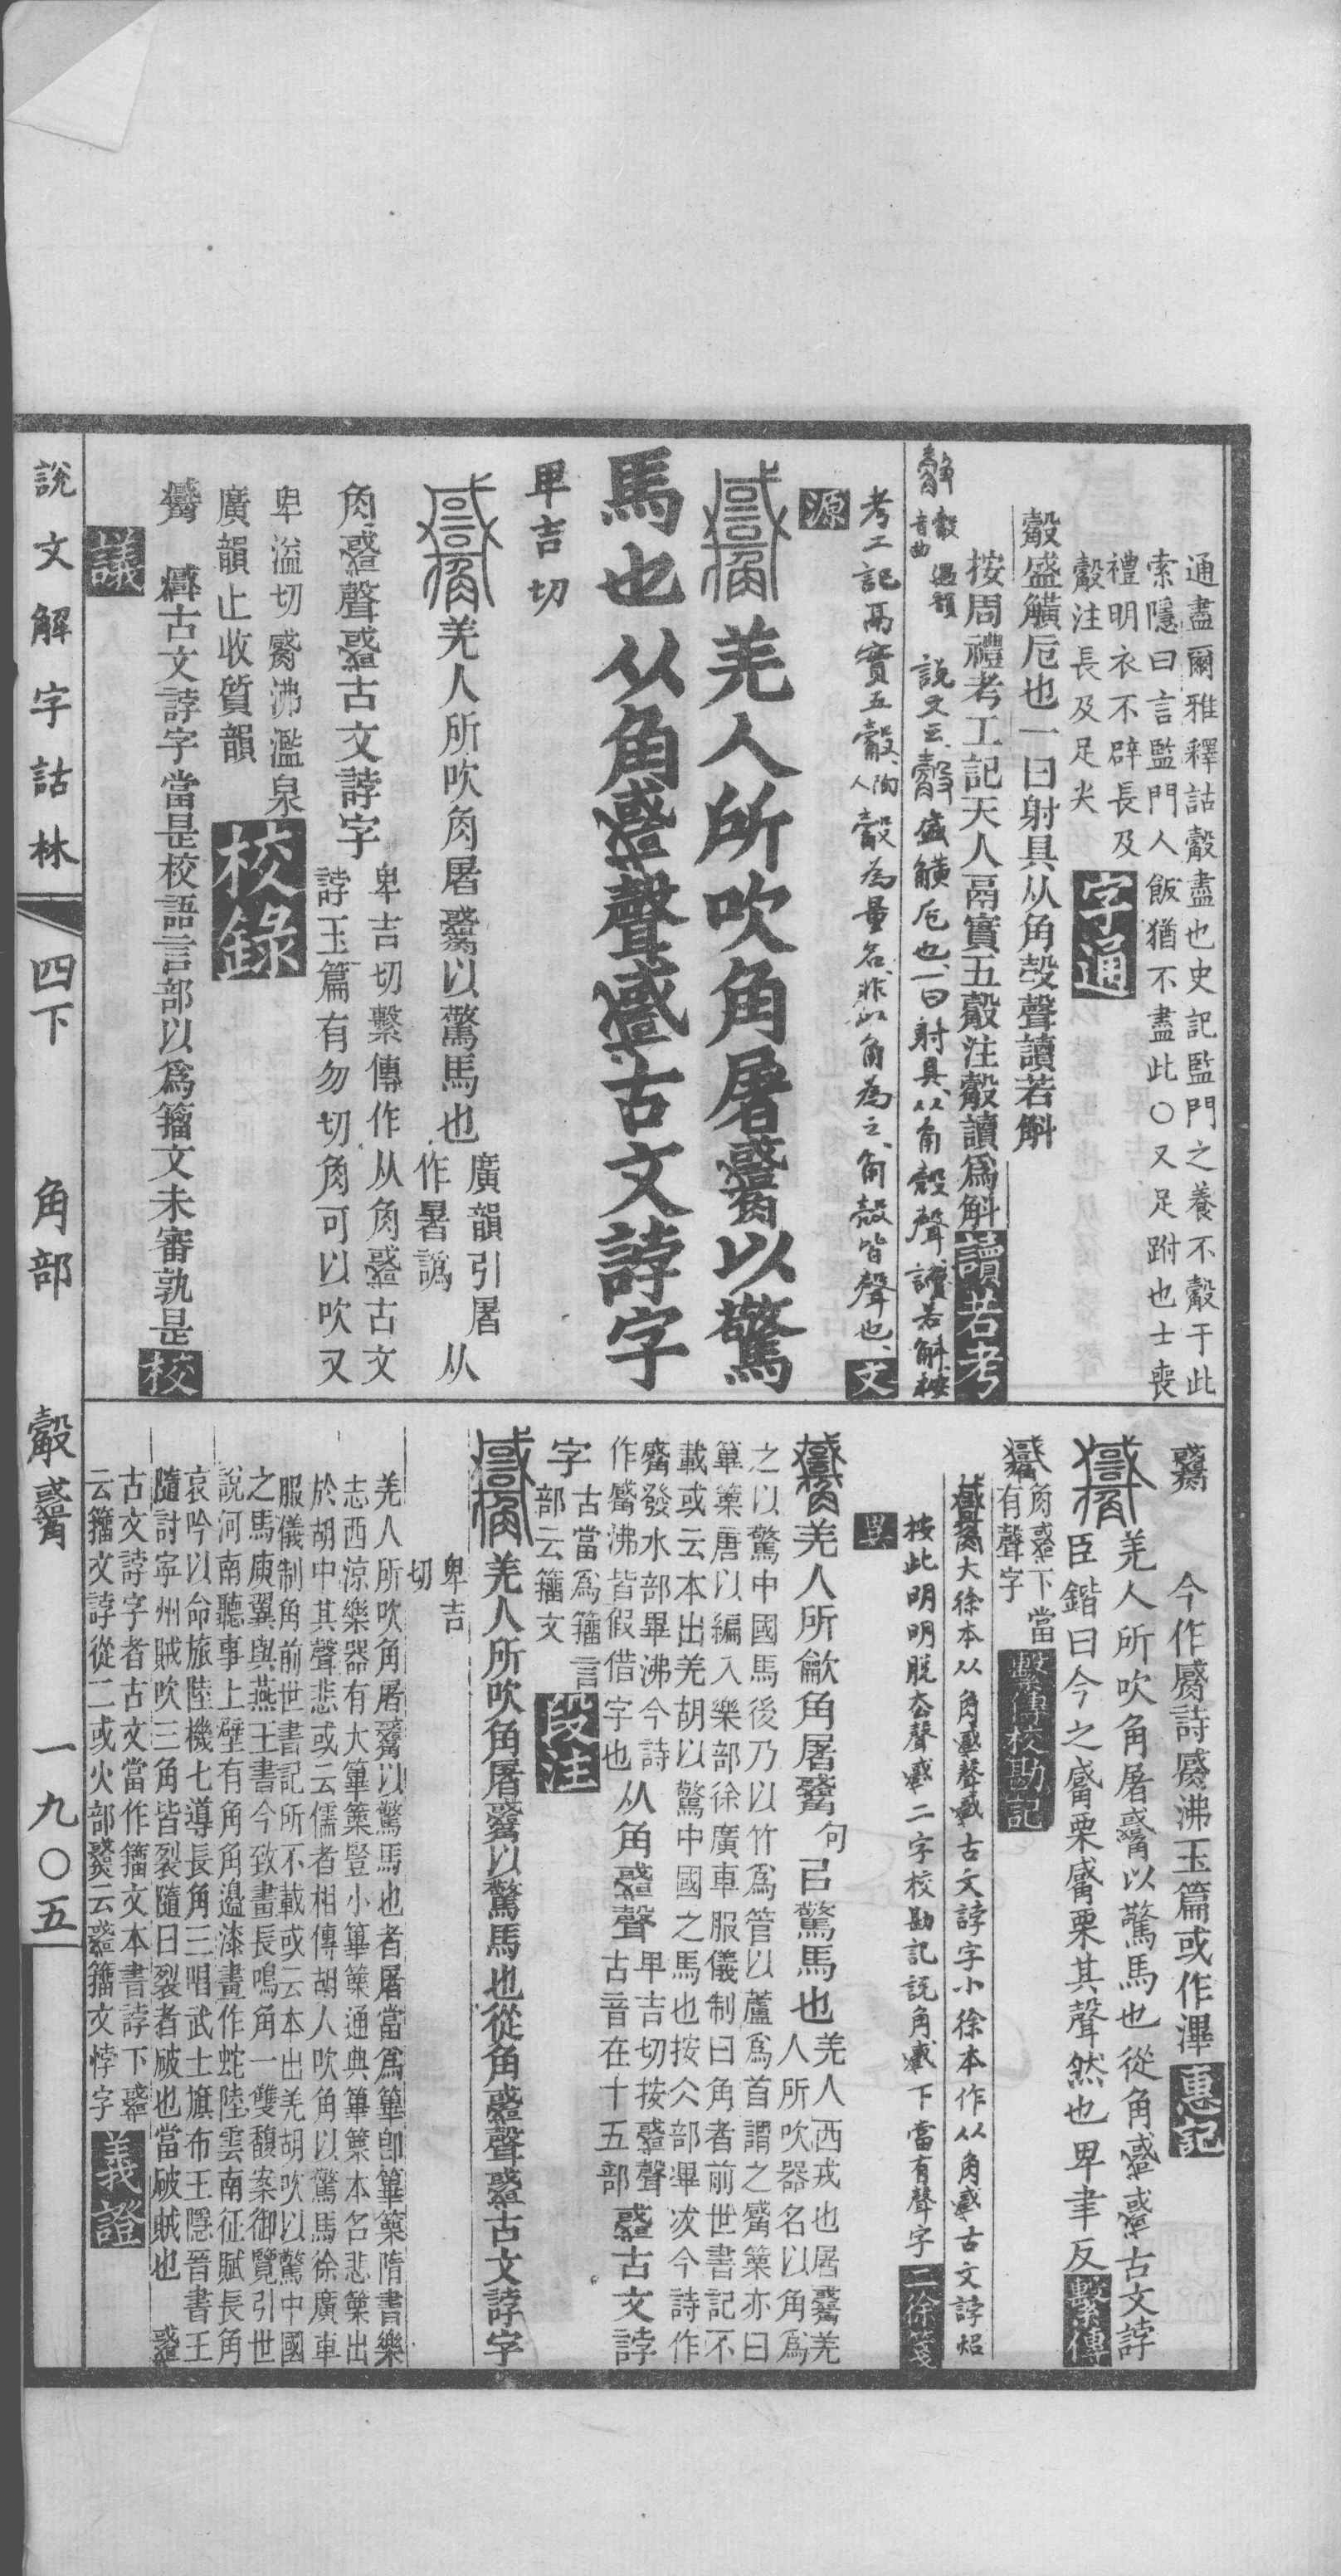 通盡爾雅釋詁觳盡也史記監門之養不觳于此
索隱曰言監門人飯猶不盡此○又足跗也士喪
禮明衣不辟長及
觳注長及足尖
字通
觳盛觵卮也一曰射具从角㱿聲讀若斛
按周禮考工記天人鬲實五觳注觳讀爲斛
讀若考
說文云觳盛觵卮也一曰射具从角㱿聲讀若斛按
考工記鬲實五觳陶人觳為量名非以角為之角㱿皆聲也
文
源
羌人所吹角屠𧥄以驚
馬也从角𧥛聲𧥛古文誖字
卑吉切
羌人所吹角屠𧥄以驚馬也
廣韻引屠
作暑譌
从
角𧥛聲𧥛古文誖字
卑吉切繫傳作从角𧥛古文
誖玉篇有勿切角可以吹又
卑溢切觱沸濫泉
廣韻止收質韻
校錄
古文誖字當是校語言部以爲籀文未審孰是
校
議
今作觱詩觱沸玉篇或作滭
惠記
羌人所吹角屠𧥄以驚馬也從角𧥛𧥛古文誖
臣鍇曰今之觱栗觱栗其聲然也卑聿反
繫傳
角𧥛下當
有聲字
繫傳校勘記
大徐本从角𧥛聲𧥛古文誖字小徐本作从角𧥛古文誖
按此明明脫去聲𧥛二字校勘記説角𧥛下當有聲字
二徐箋
異
羌人所龡角屠𧥄
句
㠯驚馬也
羌人西戎也屠𧥄羌
人所吹器名以角爲
之以驚中國馬後乃以竹爲管以蘆爲首謂之觱篥亦曰
篳篥唐以編入樂部徐廣車服儀制曰角者前世書記不
載或云本出羌胡以驚中國之馬也按仌部滭冹今詩作
觱發水部畢沸今詩
作觱沸皆假借字也
从角𧥛聲
卑吉切按𧥛聲
古音在十五部
𧥛古文誖
字
古當爲籀言
部云籀文
段注
羌人所吹角屠𧥄以驚馬也從角𧥛聲𧥛古文誖字
卑吉
切
羌人所吹角屠𧥄以驚馬也者屠當爲篳卽篳篥隋書樂
志西涼樂器有大篳篥豎小篳篥通典篳篥本名悲篥出
於胡中其聲悲或云儒者相傳胡人吹角以驚馬徐廣車
服儀制角前世書記所不載或云本出羌胡吹以驚中國
之馬庾翼與燕王書今致畫長鳴角一雙馥案御覽引世
說河南聽事上壁有角角邉漆畫作蛇陸雲南征賦長角
哀吟以命旅陸機七導長角三唱武士旗布王隱晉書王
隨討寧州賊吹三角皆裂隨曰裂者破也當破賊也
古文誖字者古文當作籀文本書誖下𧥛
云籀文誖從二或火部𤒓云𧥛籀文悖字
義證
說文解字詁林
四下
角部
觳𧥄
一九〇五